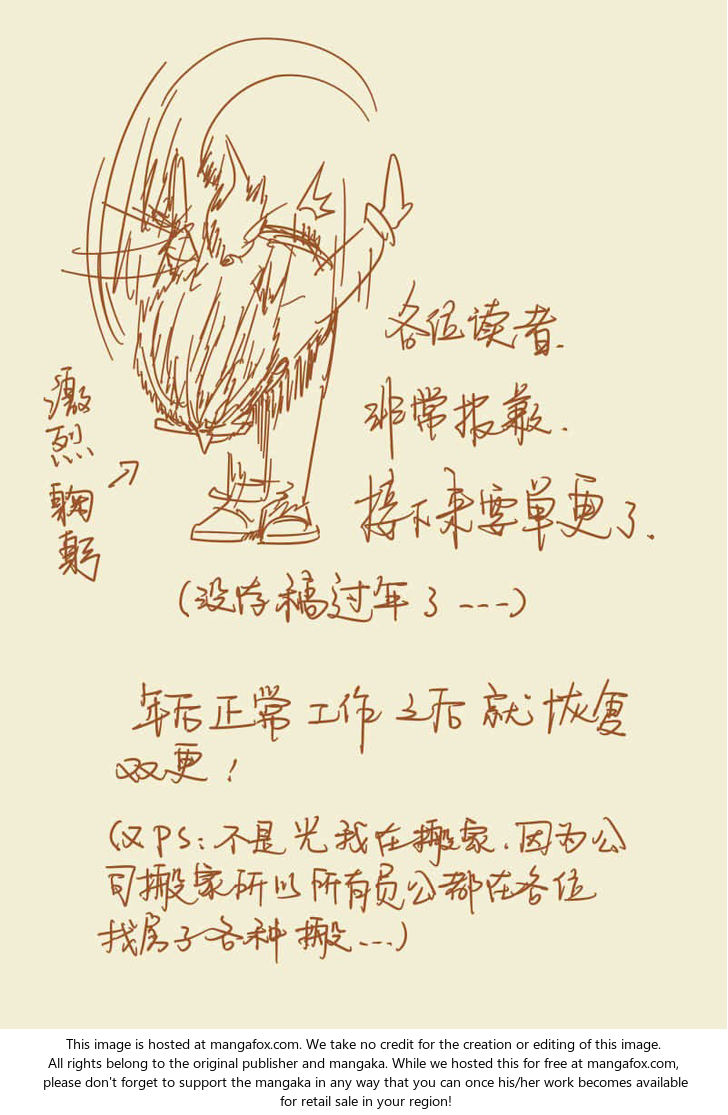 各位读者.
非常报歉.
接下来要单更了.
激烈鞠躬
(没存稿过年了---)
年后正常工作之后就恢复
双更!
(仅PS:不是光我在搬家.因为公
司搬家所以所有员公都在各位
找房子各种搬---)
This image is hosted at mangafox.com. We take no credit for the creation or editing of this image.
All rights belong to the original publisher and mangaka. While we hosted this for free at mangafox.com,
please don't forget to support the mangaka in any way that you can once his/her work becomes available
for retail sale in your region!